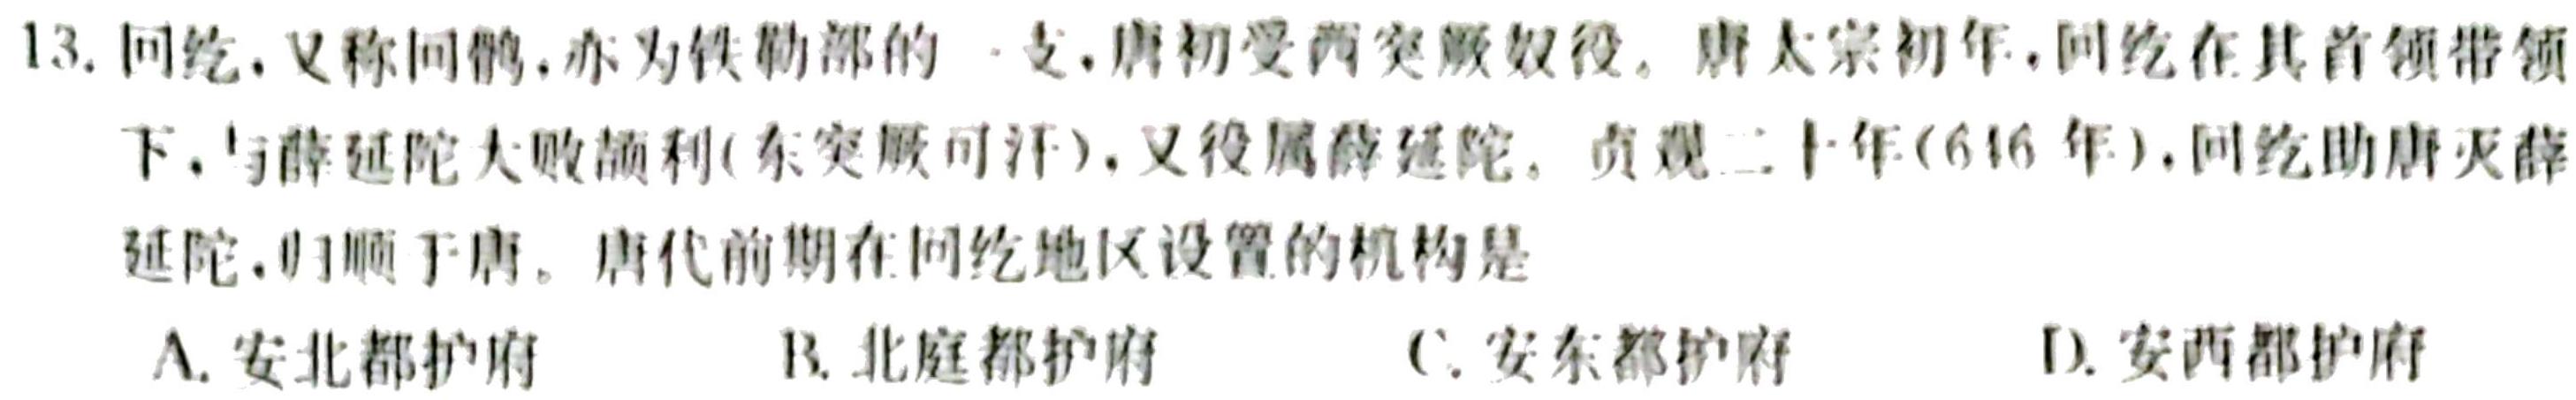 13. 回纥，又称回鹘，亦为铁勒部的一支，唐初受西突厥奴役。唐太宗初年，回纥在其首领带领
下，与薛延陀大败颉利(东突厥可汗)，又役属薛延陀。贞观二十年(646 年)，回纥助唐灭薛
延陀，归顺于唐。唐代前期在回纥地区设置的机构是
A. 安北都护府 B. 北庭都护府 C. 安东都护府 D. 安西都护府